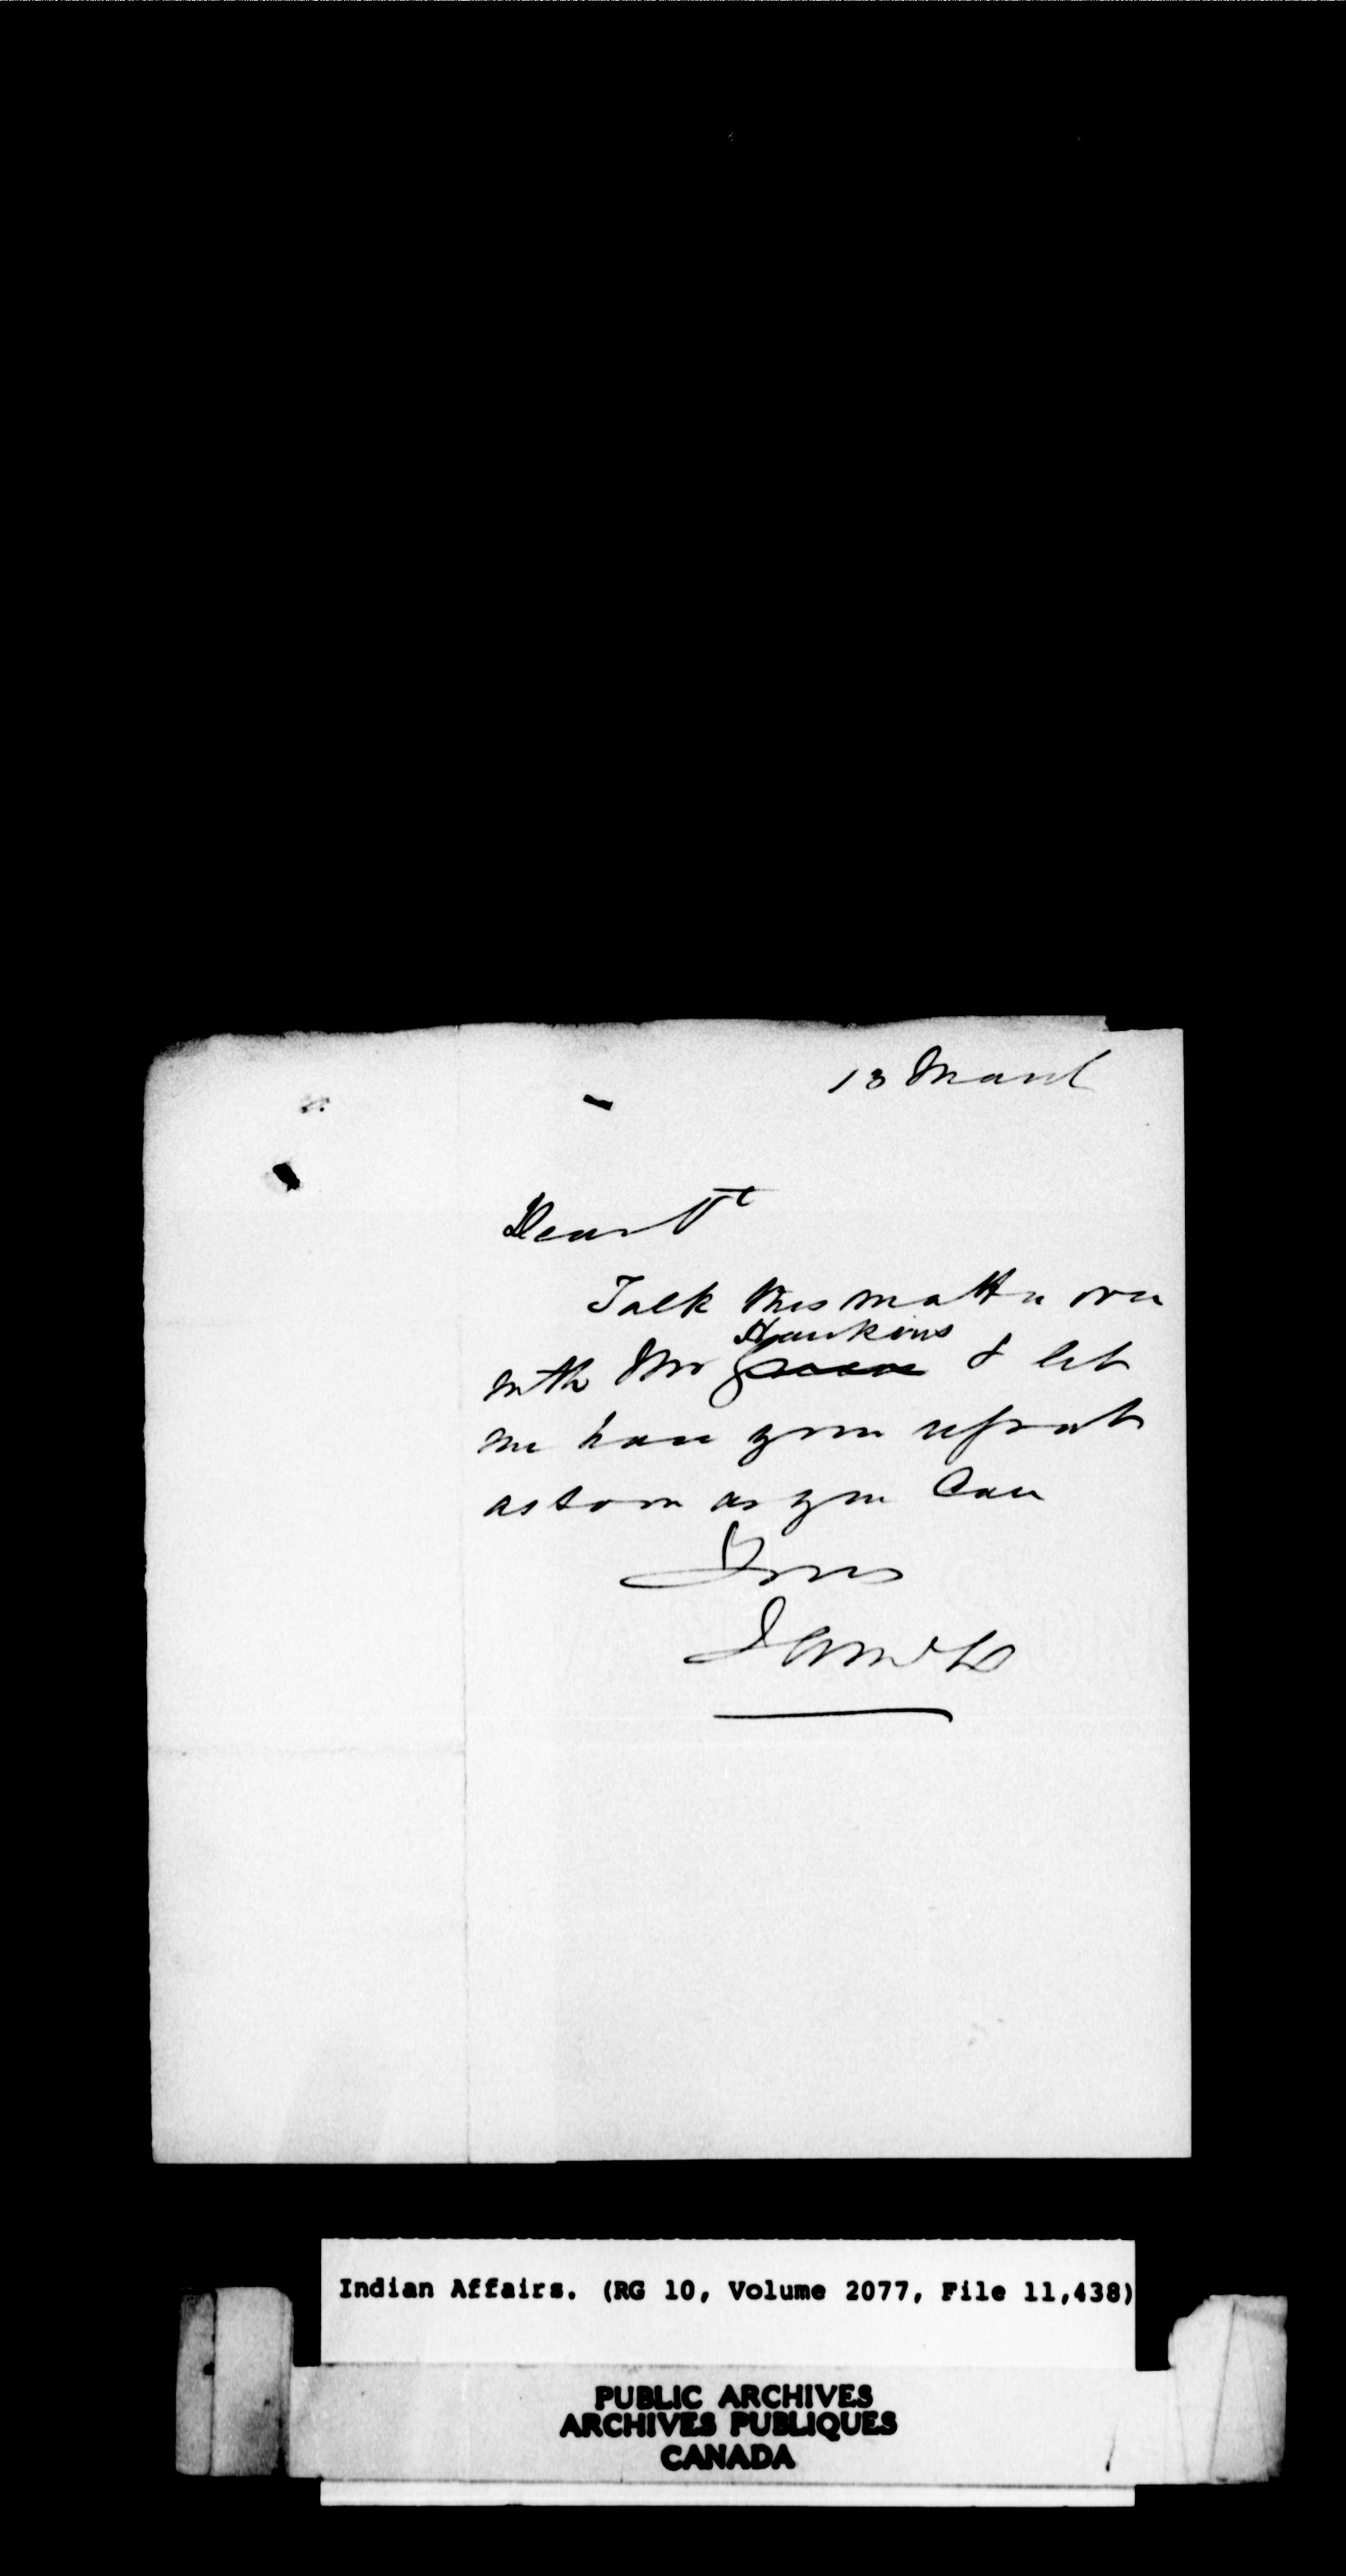 13 March
Dear V
Talk this matter over
Hawkins
with Mr & let
me have your report
as soon as you Can
Yours
Indian Affairs. (RG 10, Volume 2077, File 11,438)
PUBLIC ARCHIVES
ARCHIVES PUBLIQUES
CANADA